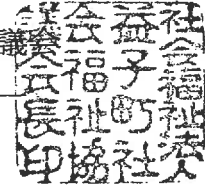 社会福祉法人
益子町社
会福祉協
議会長印
議会